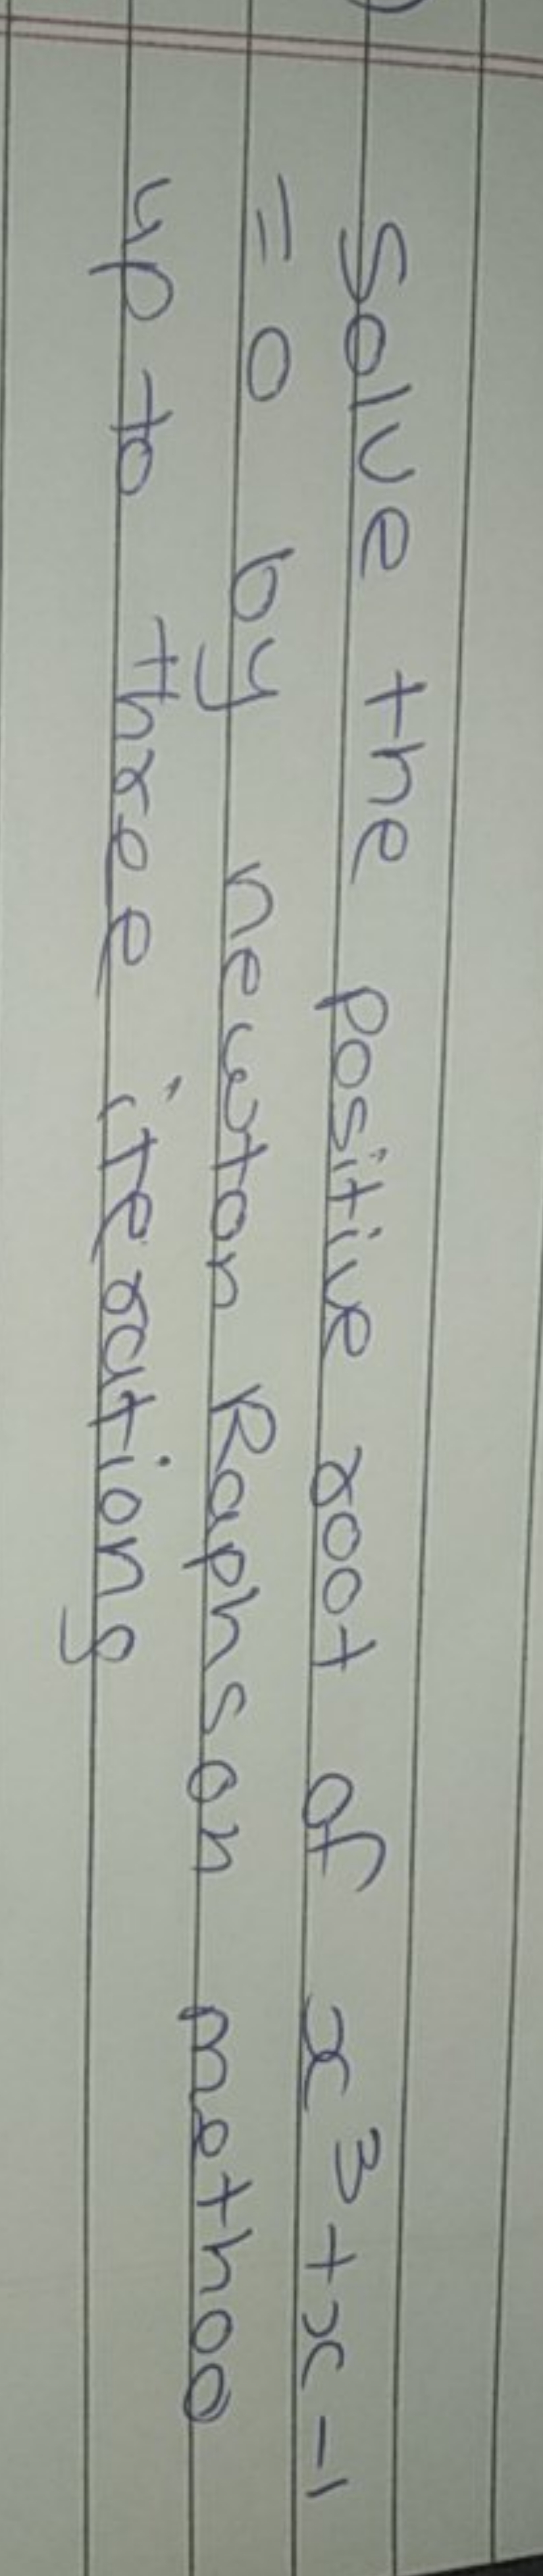 Solve the positive root of x³+x-1
= 0 by newton Raphson method
up to three iterations